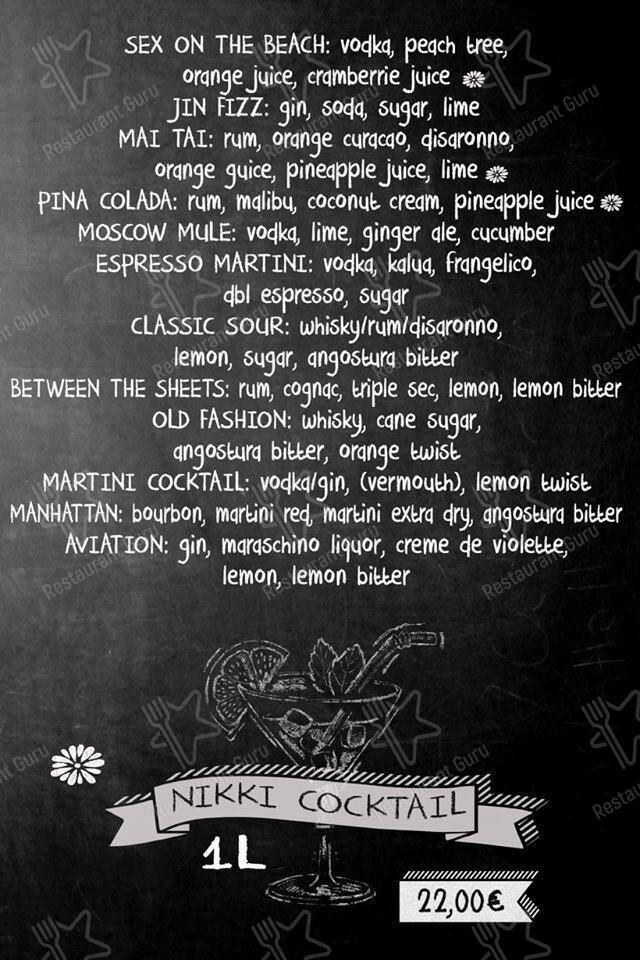 SEX ON THE BEACH: vodka, peach tree,
orange juice, cramberrie juice
JIN FIZZ: gin, soda, sugar, lime
MAI TAI: rum, orange curacao, disaronno,
orange guice, pineapple juice, lime
PINA COLADA: rum, malibu, coconut cream, pineapple juice
MOSCOW MULE: vodka, lime, ginger ale, cucumber
ESPRESSO MARTINI: vodka, kalua, frangelico,
dbl espresso, sugar
CLASSIC SOUR: whisky/rum/disaronno,
lemon, sugar, angostura bitter
BETWEEN THE SHEETS: rum, cognac, triple sec, lemon, lemon bitter
OLD FASHION: whisky, cane sugar,
angostura bitter, orange twist
MARTINI COCKTAIL: vodka/gin, (vermouth), lemon twist
MANHATTAN: bourbon, martini red, martini extra dry, angostura bitter
AVIATION: gin, maraschino liquor, creme de violette,
lemon, lemon bitter
NIKKI COCKTAIL
1L
22,00€
Restaurant Guru